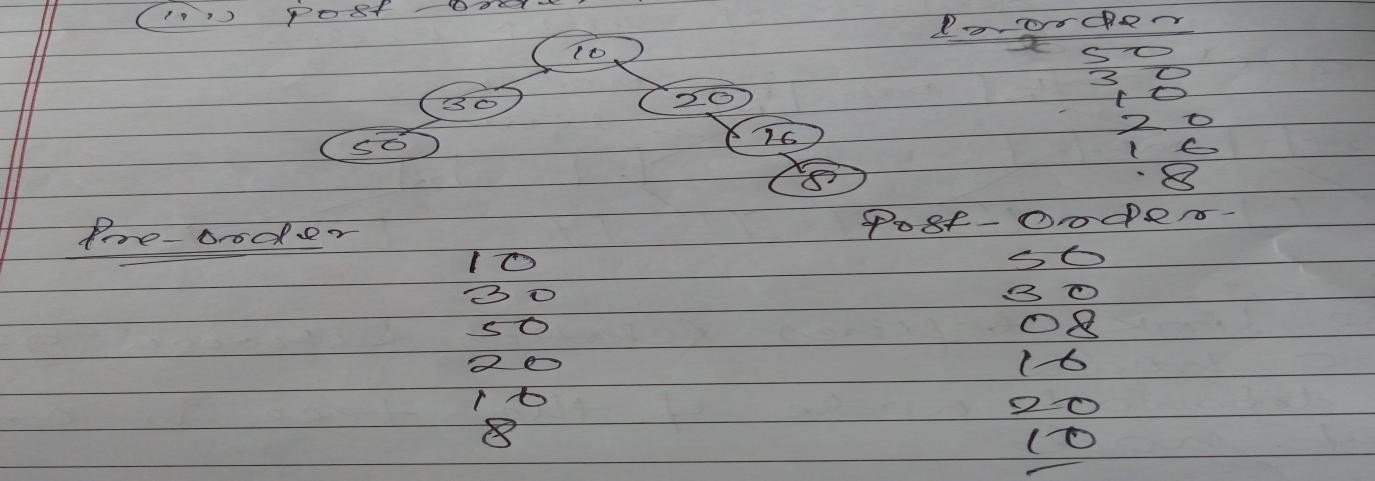 (iii) Post-Order
10
30 20
50 16
8
In-order
50
30
10
20
16
8
Pre-order
10
30
50
20
16
8
Post-Order
50
30
08
16
20
10